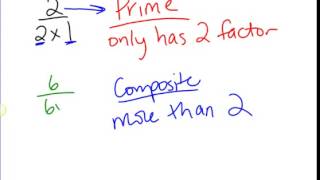 2 → Prime
2x1 only has 2 factor
6 Composite
61 more than 2